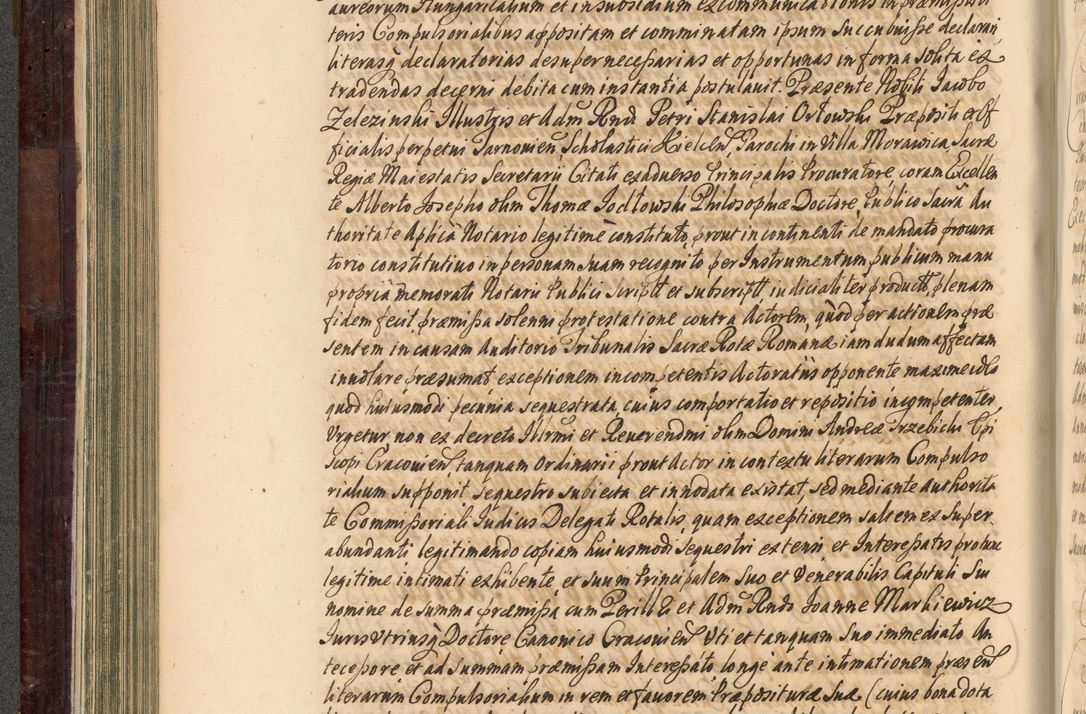 aureorum Hungaricalium et in subsidium excommunicationis in præmissis
teris Compulsorialibus appositam et comminatam ipsum succubuisse declarari
literasq declaratorias desuper necessarias et opportunas in forma solita ex
tradendas decerni debita cum instantia postulavit. Præsente Nobili Jacobo
Zelezinski Illustris et Adm Rndi Petri Stanislai Orłowski Præpositi et Of
ficialis perpetui Tarnovien, Scholastici Kielcen, Parochi in Villa Morawica, Sacræ
Regiæ Maiestatis Secretarii Citati ex adverso Principalis Procuratore, coram Excellen
te Alberto Josepho olim Thomæ Jodłowski Philosophiæ Doctore, Publico Sacrâ Au
thoritate Aplicâ Notario legitimè constituto, prout in continenti de mandato procura
torio constitutivo in personam suam recognito per Instrumentum publicum manu
propria memorati Notarii Publici script et subscript, iudicialiter product, plenam
fidem fecit, præmissa solenni protestatione contra Actorem, quòd per actionem præ
sentem in causam Auditorio Tribunalis Sacræ Rotæ Romanæ iam dudum affectam
involare præsumat, exceptionem incompetentis Actoratûs opponente maxime ideo
quòd huiusmodi pecunia sequestrata, cuius comportatio et repositio incompetenter
Urgetur, non ex decreto Illrmi et Reverendmi olim Domini Andreæ Trzebicki Epi
scopi Cracovien, tanquam Ordinarii prout Actor in contextu literarum Compulso
rialium supponit sequestro subiecta et innodata existat, sed mediante Authorita
te Commissoriali Iudicis Delegati Rotalis, quam exceptionem saltem ex super
abundanti legitimando copiam huiusmodi sequestri extensi, et Interessatis protunc
legitime intimati exhibente, et suum Principalem suo et Venerabilis Capituli Sui
nomine de summa præmissa cum Perill et Adm Rndo Joanne Markiewicz
Juris Utriusq Doctore, Canonico Cracovien Uti et tanquam suo immediato An
tecessore et ad summam præmissam Interessato, longè ante intimationem præsen
literarum Compulsorialium in rem et favorem Præpositurae suæ (cuius bona dota